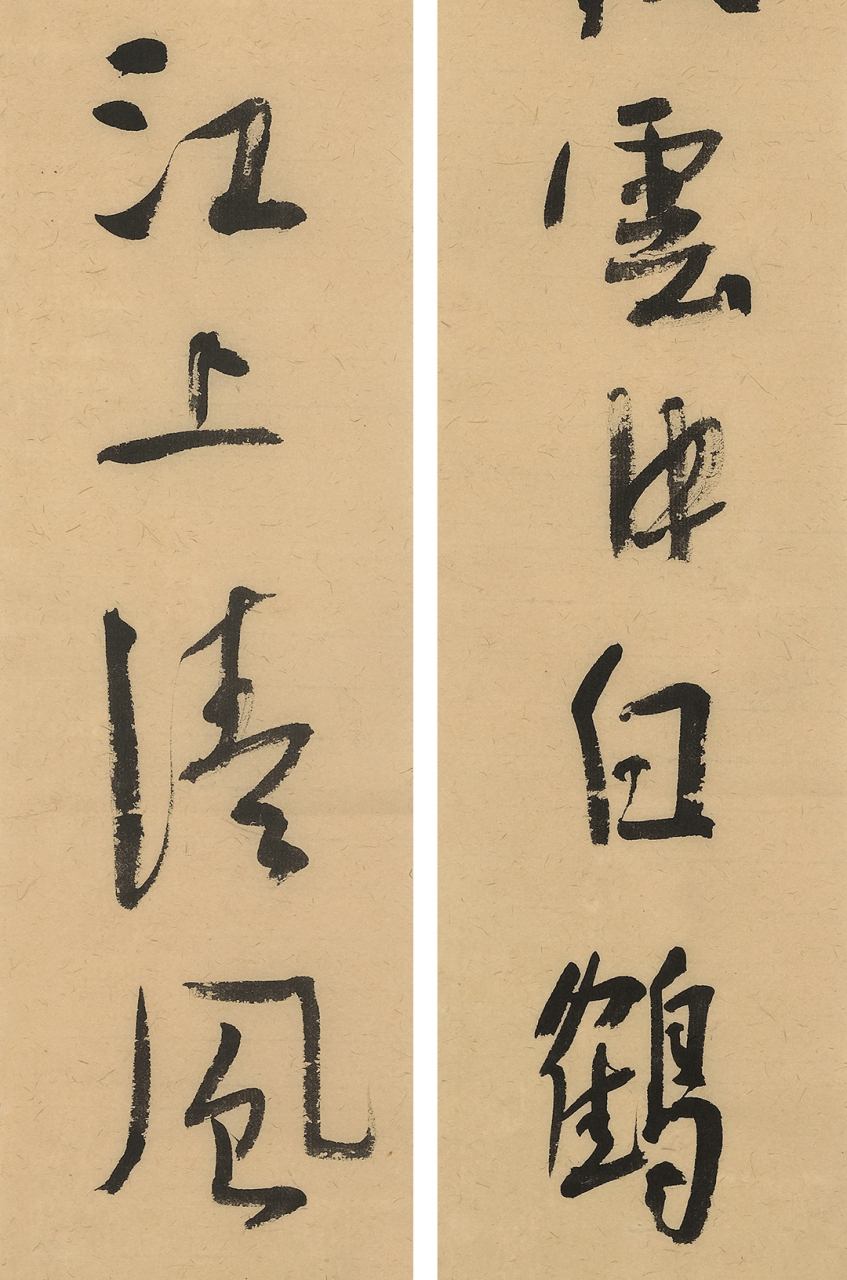 雲中白鶴
江上清風